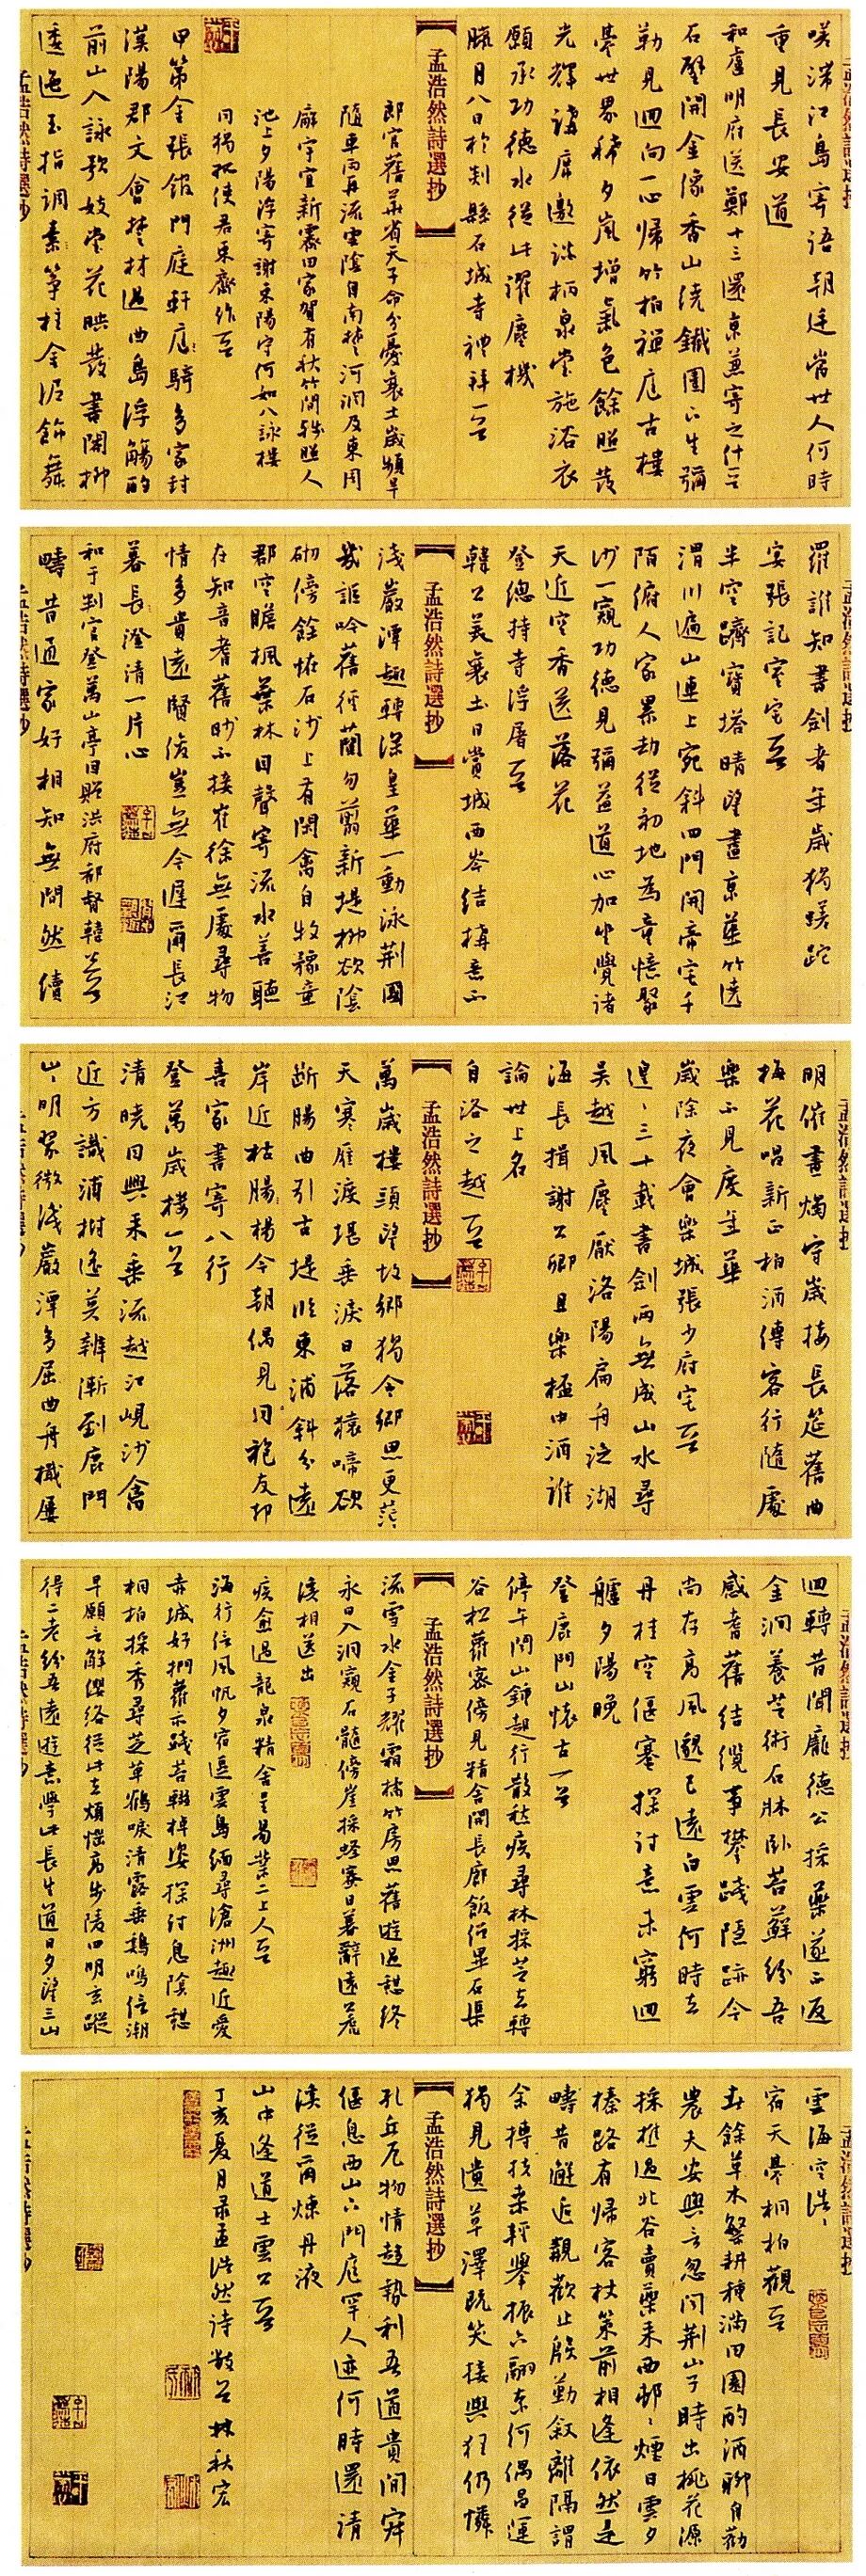 孟浩然詩選抄
嗟滯江島寄語朝廷當世人何時
重見長安道
和盧明府送鄭十三還京兼寄之什一首
石壁開金像香山繞鐵圍下生彌
勒見迴向一心歸竹柏禪庭古樓
臺世界稀夕嵐增氣色餘照發
光輝講席邀談柄泉堂施浴衣
願承功德水從此濯塵機
臘月八日於剡縣石城寺禮拜一首
孟浩然詩選抄
郎官舊華省天子命分憂襄土歲頻旱
隨車雨再流雲陰自南楚河潤及東周
廨宇宜新霽田家賀有秋竹間殘照入
池上夕陽浮寄謝東陽守何如八詠樓
同獨孤使君東齋作一首
甲第金張館門庭軒庭騎多家封
漢陽郡文會楚材過曲島浮觴酌
前山入詠歌妓堂花映發書閣柳
逶迤玉指調素箏柱金泥飾舞
孟浩然詩選抄
孟浩然詩選抄
羅誰知書劍者年歲獨蹉跎
宴張記室宅一首
半空躋寶塔晴望盡京華竹遶
渭川遍山連上宛斜四門開帝宅千
陌俯人家累劫從初地為童憶聚
沙一窺功德見彌益道心加坐覺諸
天近空香送落花
登總持寺浮屠一首
韓公美襄土日賞城西岑結構意不
孟浩然詩選抄
淺巖潭趣轉深皇華一動詠荊國
幾謳吟舊徑蘭勿翦新堤柳欲陰
砌傍餘怪石沙上有閑禽自牧豫章
郡空瞻楓葉林因聲寄流水善聽
在知音耆舊眇不接崔徐無處尋物
情多貴遠賢俊豈無今遲爾長江
暮長澄清一片心
和于判官登萬山亭因贈洪府都督韓公一首
疇昔通家好相知無間然續
孟浩然詩選抄
孟浩然詩選抄
明催畫燭守歲接長筵舊曲
梅花唱新正柏酒傳客行隨處
樂不見度年華
歲除夜會樂城張少府宅一首
遑〻三十載書劍兩無成山水尋
吳越風塵厭洛陽扁舟泛湖
海長揖謝公卿且樂極中酒誰
論世上名
自洛之越一首
孟浩然詩選抄
萬歲樓頭望故鄉獨令鄉思更茫〻
天寒雁渡堪垂淚日落猿啼欲
斷腸曲引古堤臨東浦斜分遠
岸近枯腸楊今朝偶見同袍友却
喜家書寄八行
登萬歲樓一首
清曉因興來乘流越江峴沙禽
近方識浦樹遙莫辨漸到鹿門
山〻明翠微淺巖潭多屈曲舟檝屢
孟浩然詩選抄
孟浩然詩選抄
迴轉昔聞龐德公採藥遂不返
金澗養芝術石牀臥苔蘚紛吾
感耆舊結纜事攀踐隱跡今
尚存高風邈已遠白雲何時去
丹桂空偃蹇探討意未窮迴
艫夕陽晚
登鹿門山懷古一首
停午聞山鐘起行散愁疾尋林採芝去轉
谷松蘿密傍見精舍開長廊飯僧畢石渠
孟浩然詩選抄
流雪水金子耀霜橘竹房思舊遊過憩終
永日入洞窺石髓傍崖採蜂蜜日暮辭遠虎
溪相送出
疾愈過龍泉精舍呈易業二上人一首
海行信風帆夕宿逗雲島緬尋滄洲趣近愛
赤城好捫蘿亦踐苔輟棹恣探討息陰憩
桐柏採秀尋芝草鶴唳清露垂鷄鳴信潮
早願言解纓絡從此去煩惱高步陵四明玄蹤
得二老紛吾遠遊意學此長生道日夕望三山
孟浩然詩選抄
孟浩然詩選抄
雲海空浩〻
宿天臺桐柏觀一首
春餘草木繁耕種滿田園酌酒聊自勸
農夫安與言忽聞荊山子時出桃花源
採樵過北谷賣藥來西邨〻煙日雲夕
榛路有歸客杖策前相逢依然是
疇昔邂逅觀歡止殷勤敘離隔謂
余摶扶桑輕舉振六翮奈何偶昌運
獨見遺草澤既笑接輿狂仍憐
孟浩然詩選抄
孔丘厄物情趨勢利吾道貴閒寂
偃息西山下門庭罕人迹何時還清
溪從爾煉丹液
山中逢道士雲公一首
丁亥夏月录孟浩然诗数首林秋宏
孟浩然詩選抄